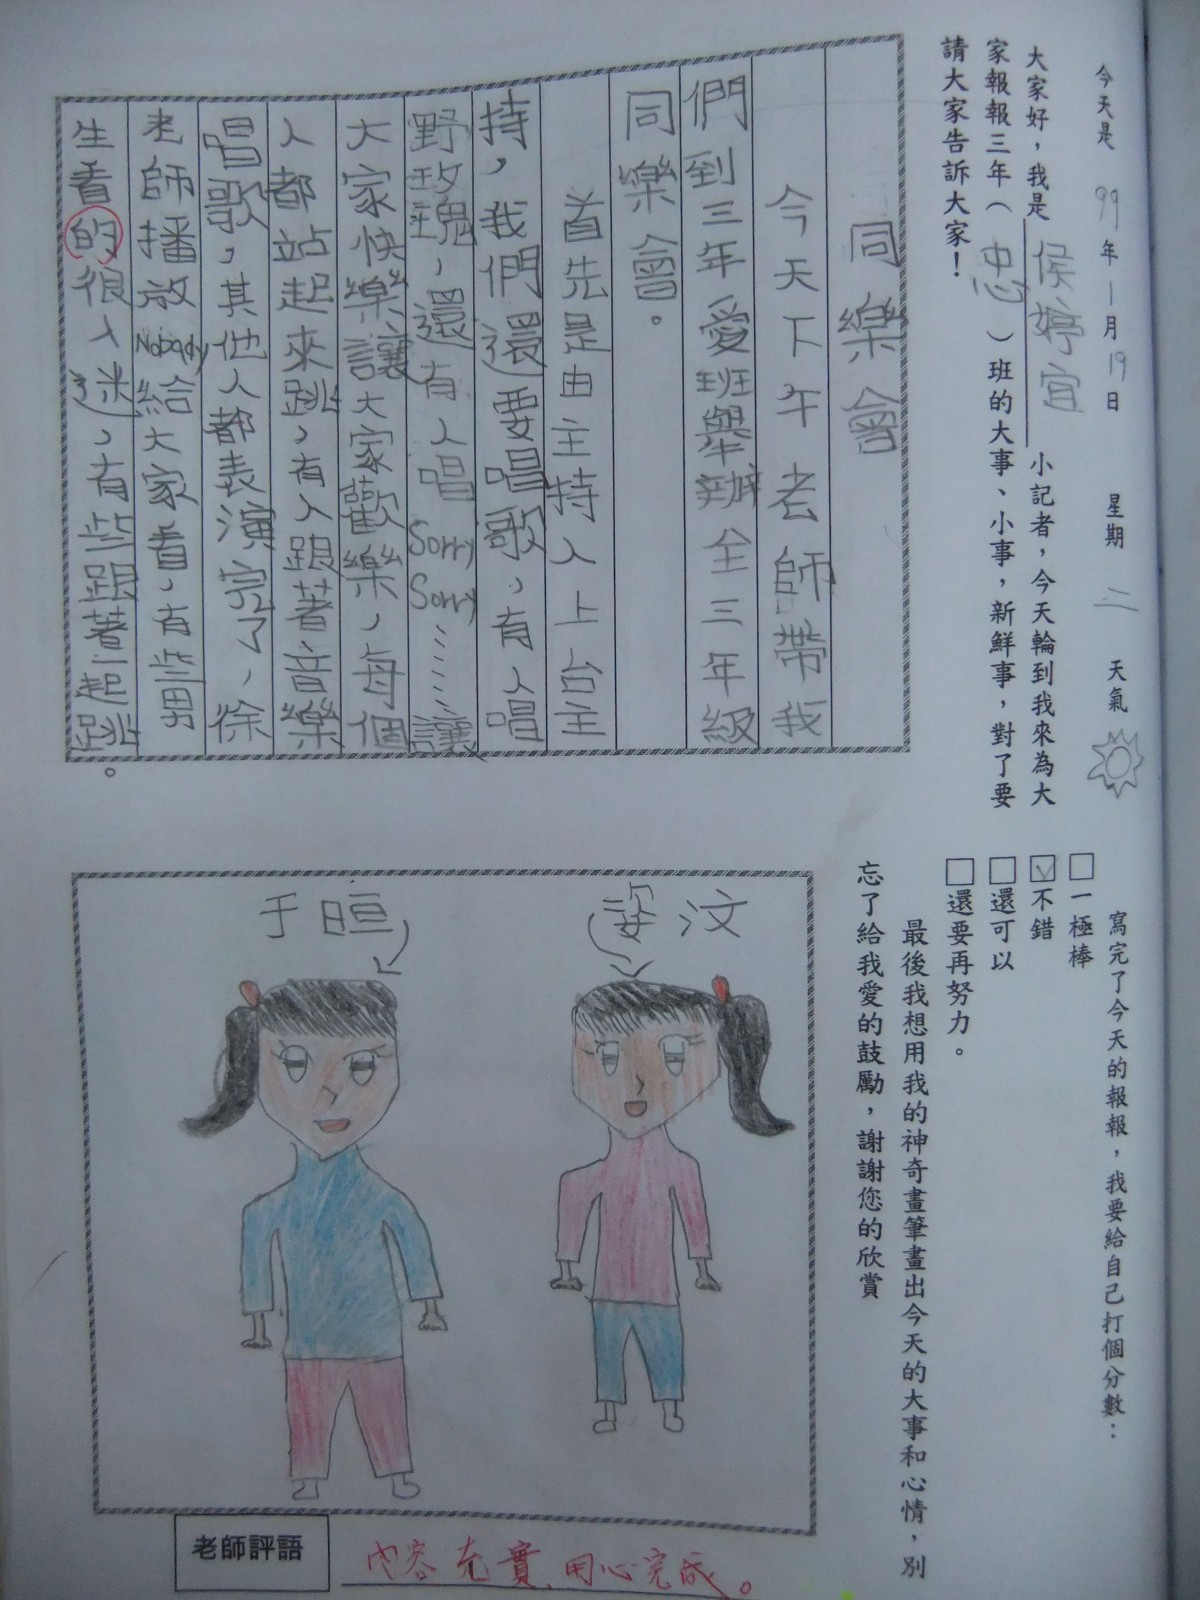 今天是 99年1月19日 星期二 天氣
大家好，我是侯婷宜小記者，今天輪到我來為大
家報報三年（忠）班的大事、小事，新鮮事，對了要
請大家告訴大家！
同樂會
今天下午老師帶我
們到三年愛班舉辦全三年級
同樂會。
首先是由主持人上台主
持，我們還要唱歌，有人唱
野玫瑰，還有人唱Sorry Sorry……讓
大家快樂讓大家歡樂，每個
人都站起來跳，有人跟著音樂
唱歌，其他人都表演完了，徐
老師播放Nobody給大家看，有些男
生看的很入迷，有些跟著一起跳。
寫完了今天的報報，我要給自己打個分數：
□一極棒
☑不錯
□還可以
□還要再努力。
最後我想用我的神奇畫筆畫出今天的大事和心情，別
忘了給我愛的鼓勵，謝謝您的欣賞
姿汶
于暄
老師評語
內容充實，用心完成。